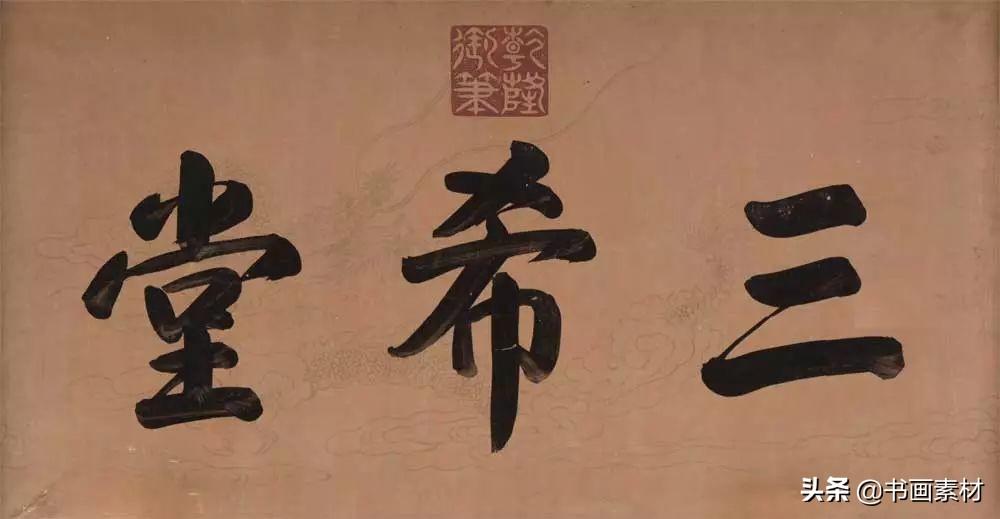 乾隆御筆
三希堂
头条@书画素材